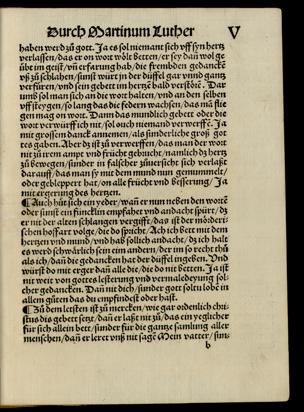 Durch Martinum Luther V
haben werd zů gott. Ja es sol niemant sich vff syn hertz
verlassen, das er on wort wölt betten / er sey dañ wol ge
übt im geist / vñ erfarung hab, die frembden gedanckē
vß zů schlahen / sunst würt jn der düffel gar vnnd gantz
verfüren / vnd sein gebett im hertzē bald verstöre. Dar
umb sol man sich an die wort halten / vnd an den selben
vffsteygen / so lang das die federn wachsen, das mā flie
gen mag on wort. Dann das mundlich gebett oder die
wort verwürff ich nit / sol ouch niemand verwerffē. Ja
mit grossem danck annemen / als sunderliche groß got
tes gaben. Aber dz ist zů verwerffen / das man der wort
nit zů irem ampt vnd frücht gebrucht / namlich dz hertz
zů bewegen / sunder in falscher zůuersicht sich verlaßt
darauff / das man sy mit dem mund nun gemummelt /
oder geblepert hat / on alle frücht vnd besserung / Ja
mit ergerung des hertzen.
¶ Auch hüt sich ein yeder / wañ er nun neben den wortē
oder sunst ein füncklin empfahet vnd andacht spürt / dz
er nit der alten schlangen vergifft / das ist der mörderi-
schen hoffart volge / die do spricht / Ach ich bett mit dem
hertzen vnd mund / vnd hab sollich andacht / dz ich halt
es werd schwärlich sein ein andern / der im so recht thů
als ich / dañ die gedancken hat der düffel ingeben. Vnd
würst do mit erger dañ alle die / die do nit betten. Ja ist
nit weit von gottes lesterung vnd vermaledeyung sol-
cher gedancken. Dañ nit dich / sunder gott soltu lobē in
allem gůten das du empfindest oder hast.
¶ Zů dem letsten ist zů mercken / wie gar ordenlich chri-
stus dis gebett setzt / dañ er laßt nit zů / das ein yeglicher
für sich allein bett / sunder für die gantz samlung aller
menschen / dañ er leret vnß nit sagē Mein vatter / sun-
b